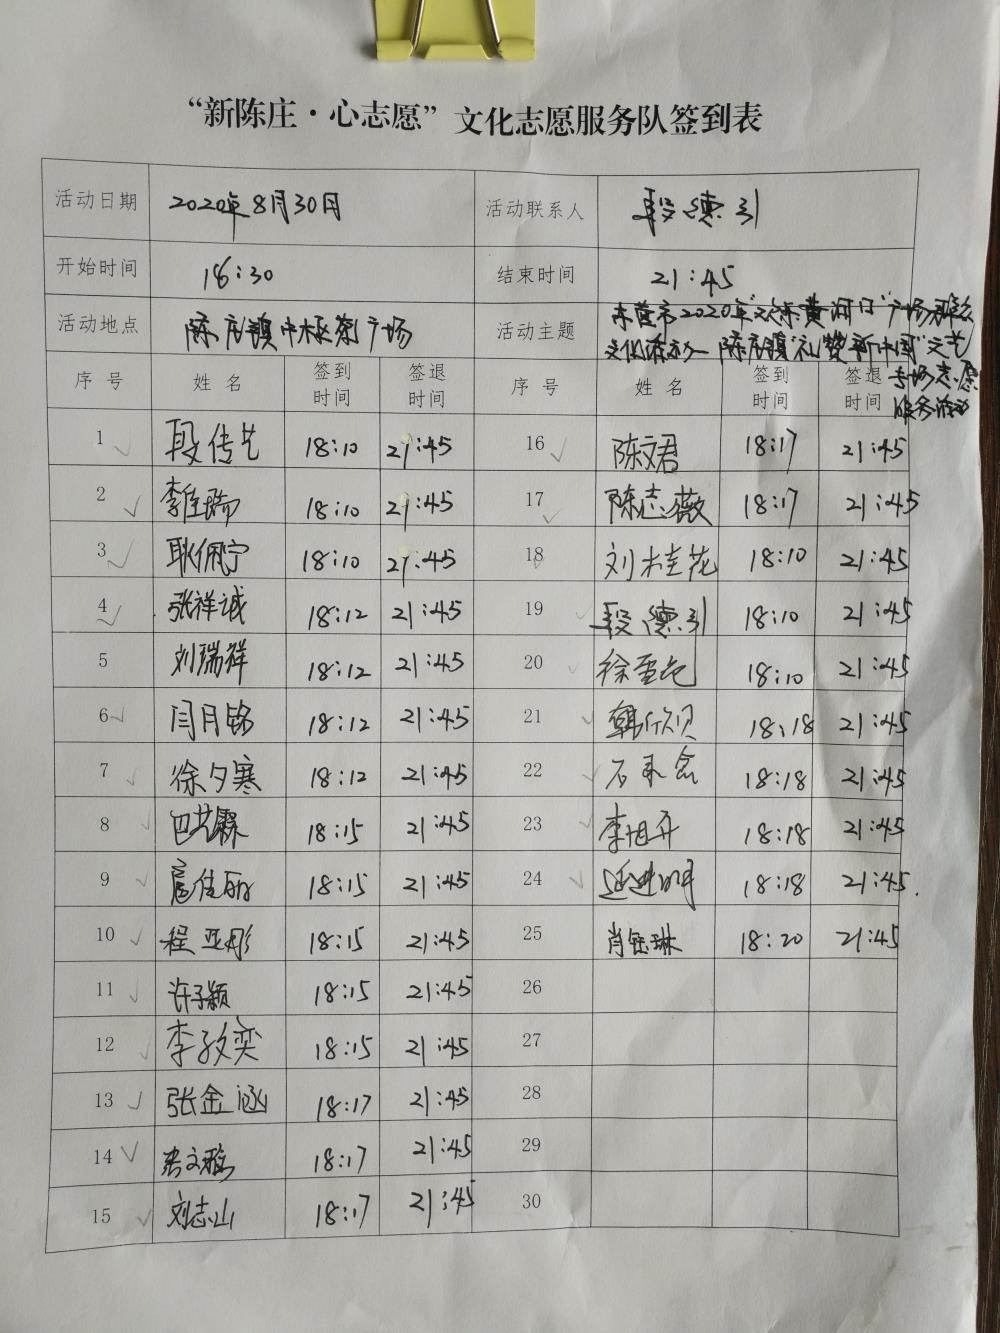 “新陈庄·心志愿”文化志愿服务队签到表
活动日期 2020年8月30日 活动联系人 段德引
开始时间 18:30 结束时间 21:45
活动地点 陈庄镇中 广场 活动主题 东营市2020年“欢乐黄河口”广场群众
文化活动— 陈庄镇“礼赞新中国”文艺
专场志愿
服务活动
序号 姓名 签到时间 签退时间 序号 姓名 签到时间 签退时间
1 段传艺 18:10 21:45 16 陈文君 18:17 21:45
2 李佳瑞 18:10 21:45 17 陈志薇 18:17 21:45
3 耿佩宁 18:10 21:45 18 刘桂花 18:10 21:45
4 张祥诚 18:12 21:45 19 段德引 18:10 21:45
5 刘瑞祥 18:12 21:45 20 徐雪 18:10 21:45
6 闫月铭 18:12 21:45 21 韩欣贝 18:18 21:45
7 徐夕寒 18:12 21:45 22 石 18:18 21:45
8 巴艺霖 18:15 21:45 23 李旭升 18:18 21:45
9 扈佳丽 18:15 21:45 24 延进明 18:18 21:45
10 程亚彤 18:15 21:45 25 肖钰琳 18:20 21:45
11 许子颖 18:15 21:45 26
12 李孜奕 18:15 21:45 27
13 张金涵 18:17 21:45 28
14 18:17 21:45 29
15 刘志山 18:17 21:45 30